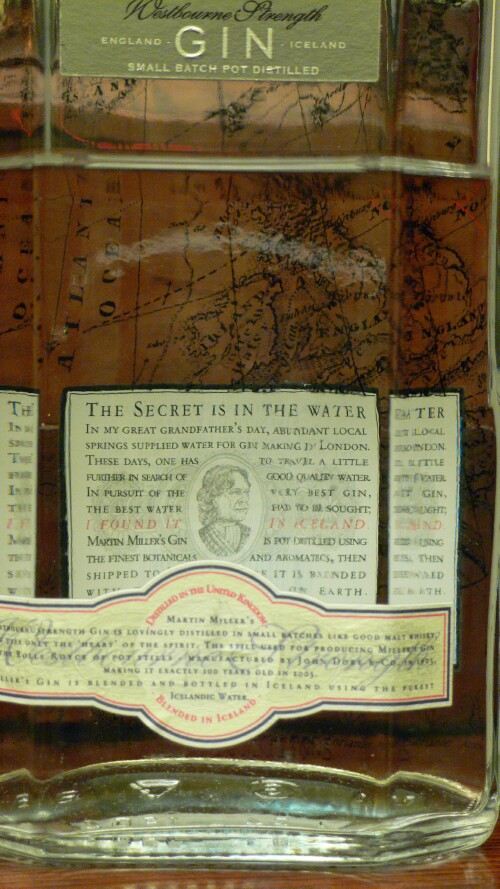 Westbourne Strength
ENGLAND - GIN - ICELAND
SMALL BATCH POT DISTILLED
ATLANTIC
OCEA
ENGLA
NO
THE SECRET IS IN THE WATER
IN MY GREAT GRANDFATHER'S DAY, ABUNDANT LOCAL
SPRINGS SUPPLIED WATER FOR GIN MAKING IN LONDON.
THESE DAYS, ONE HAS TO TRAVEL A LITTLE
FURTHER IN SEARCH OF GOOD QUALITY WATER.
IN PURSUIT OF THE VERY BEST GIN,
THE BEST WATER HAD TO BE SOUGHT;
I FOUND IT IN ICELAND
MARTIN MILLER'S GIN IS POT DISTILLED USING
THE FINEST BOTANICALS AND AROMATICS, THEN
SHIPPED TO IT IS BLENDED
EARTH.
DISTILLED IN THE UNITED KINGDOM
MARTIN MILLER'S
STRENGTH GIN IS LOVINGLY DISTILLED IN SMALL BATCHES LIKE GOOD MALT WHISKY,
ONLY THE 'HEART' OF THE SPIRIT. THE STILL USED FOR PRODUCING MILLER'S GIN
THE ROLLS ROYCE OF POT STILLS MANUFACTURED BY JOHN DORE & CO. IN 1903,
MAKING IT EXACTLY 100 YEARS OLD IN 2003.
GIN IS BLENDED AND BOTTLED IN ICELAND USING THE PUREST
ICELANDIC WATER
BLENDED IN ICELAND